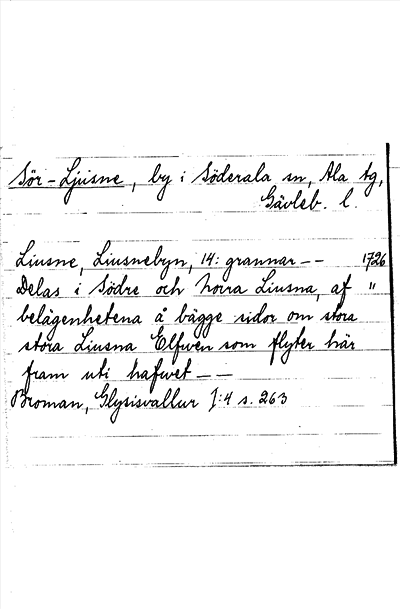 Sör-Ljusne, by i Söderala sn, Ala tg,
Gävleb. l.
Liusne, Liusnebyn, 14: grannar -- 1726
Delas i Södre och Norra Liusna, af "
belägenhetena å bägge sidor om stora
stora Liusna Elfwen som flyter här
fram uti hafwet --
Broman, Glysisvallur I:4 s. 263